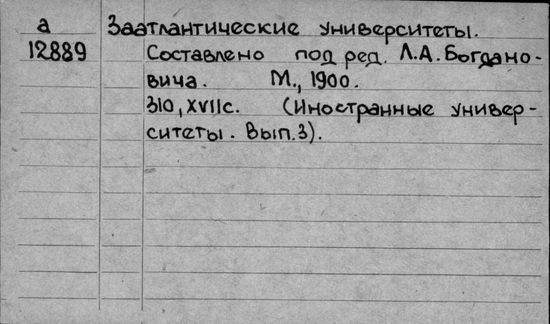 а Заатлантические университеты.
12889 Составлено под ред. Л.А. Богдано-
вича. М., 1900.
310, XVII с. (Иностранные универ-
ситеты. Вып. 3).